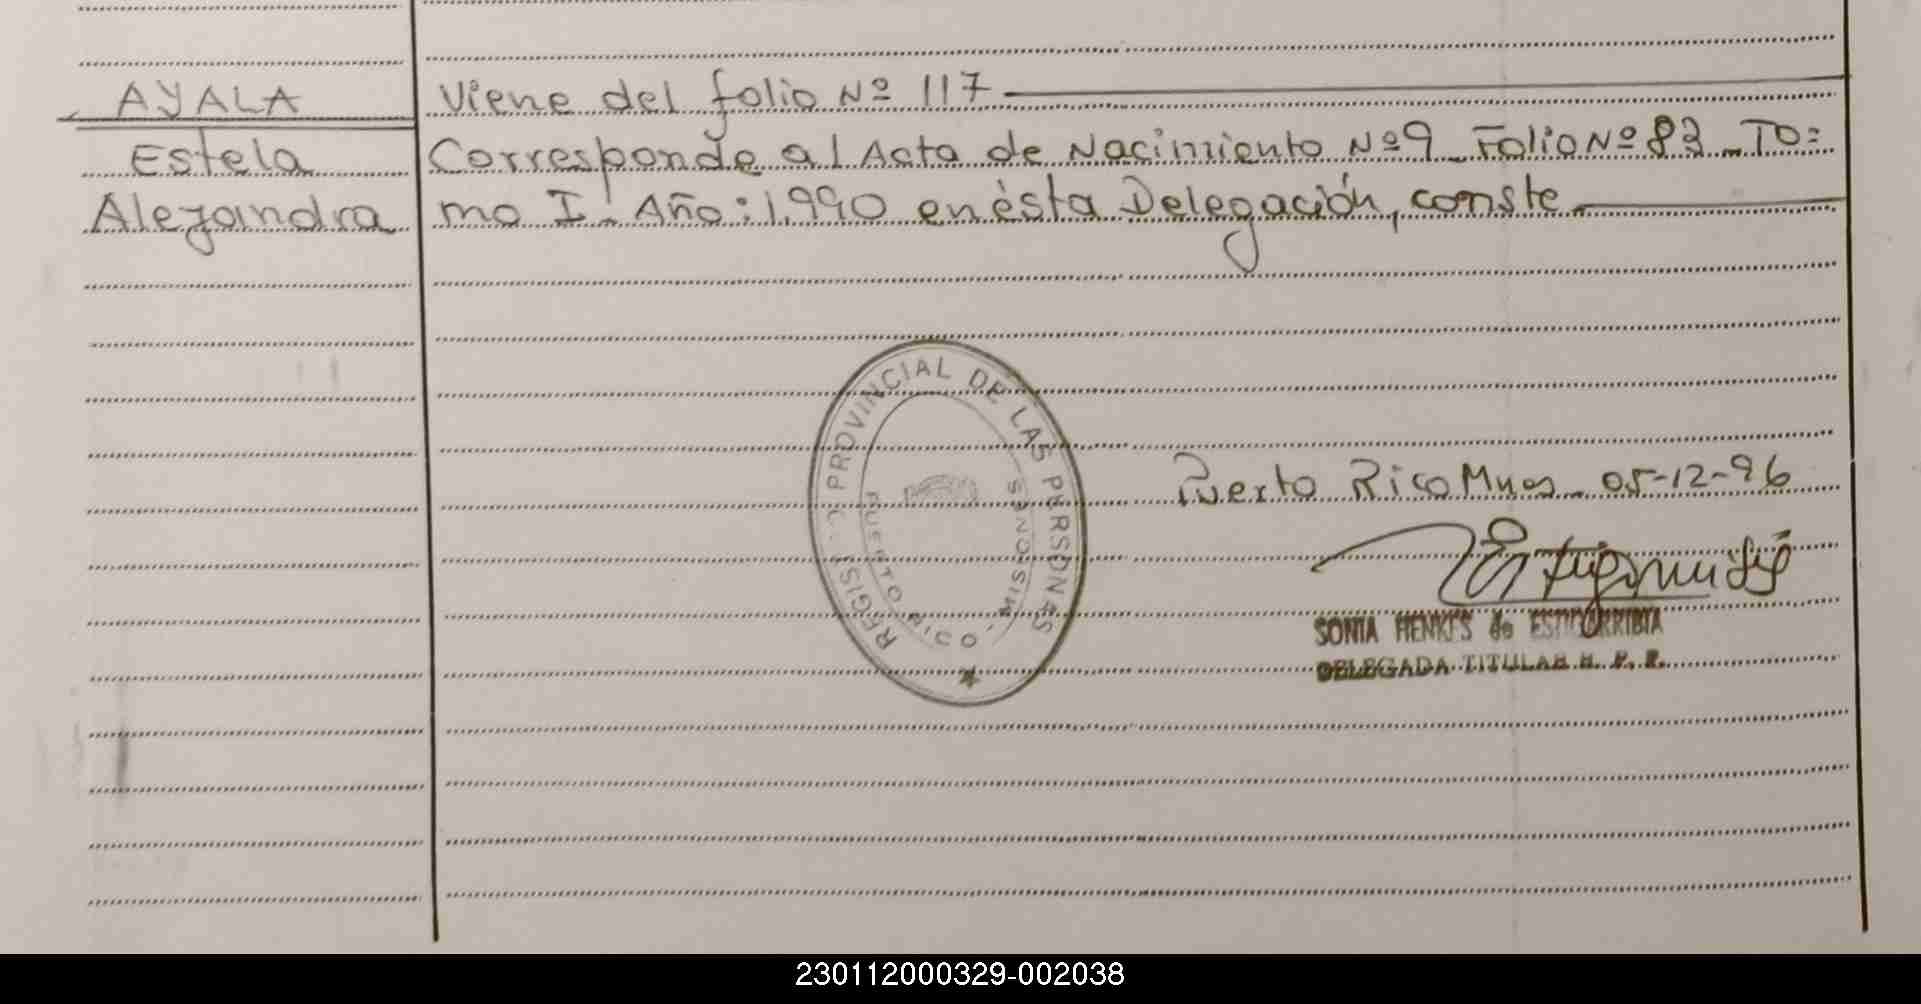 AYALA
Estela
Alejandra
Viene del folio Nº 117
Corresponde al Acta de Nacimiento Nº 9 - Folio Nº 83 - To=
mo I - Año: 1.990 en ésta Delegación, conste
REGIS. PROVINCIAL DE LAS PERSONAS
PUERTO RICO - MISIONES
Puerto Rico Mnes - 05-12-96
SONIA HENKES de ESTIGARRIBIA
DELEGADA TITULAR R. P. P.
230112000329-002038